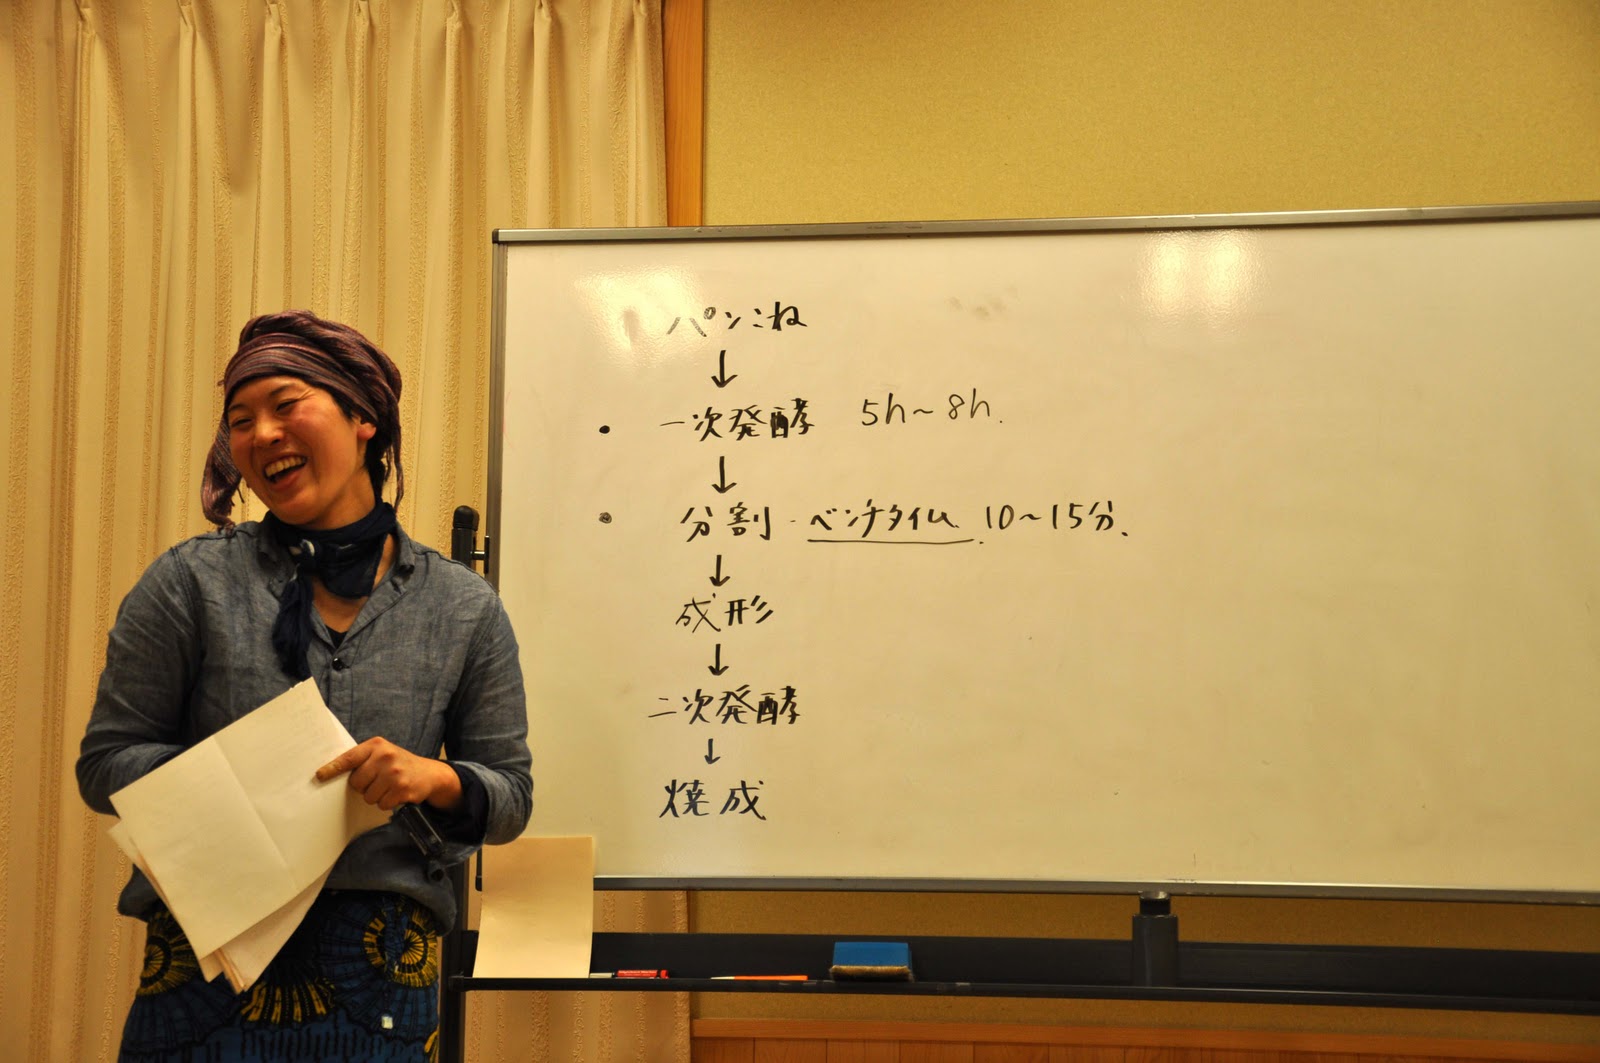 パンこね
↓
・ 一次発酵 5h~8h.
↓
・ 分割・ベンチタイム. 10~15分.
↓
成形
↓
二次発酵
↓
焼成